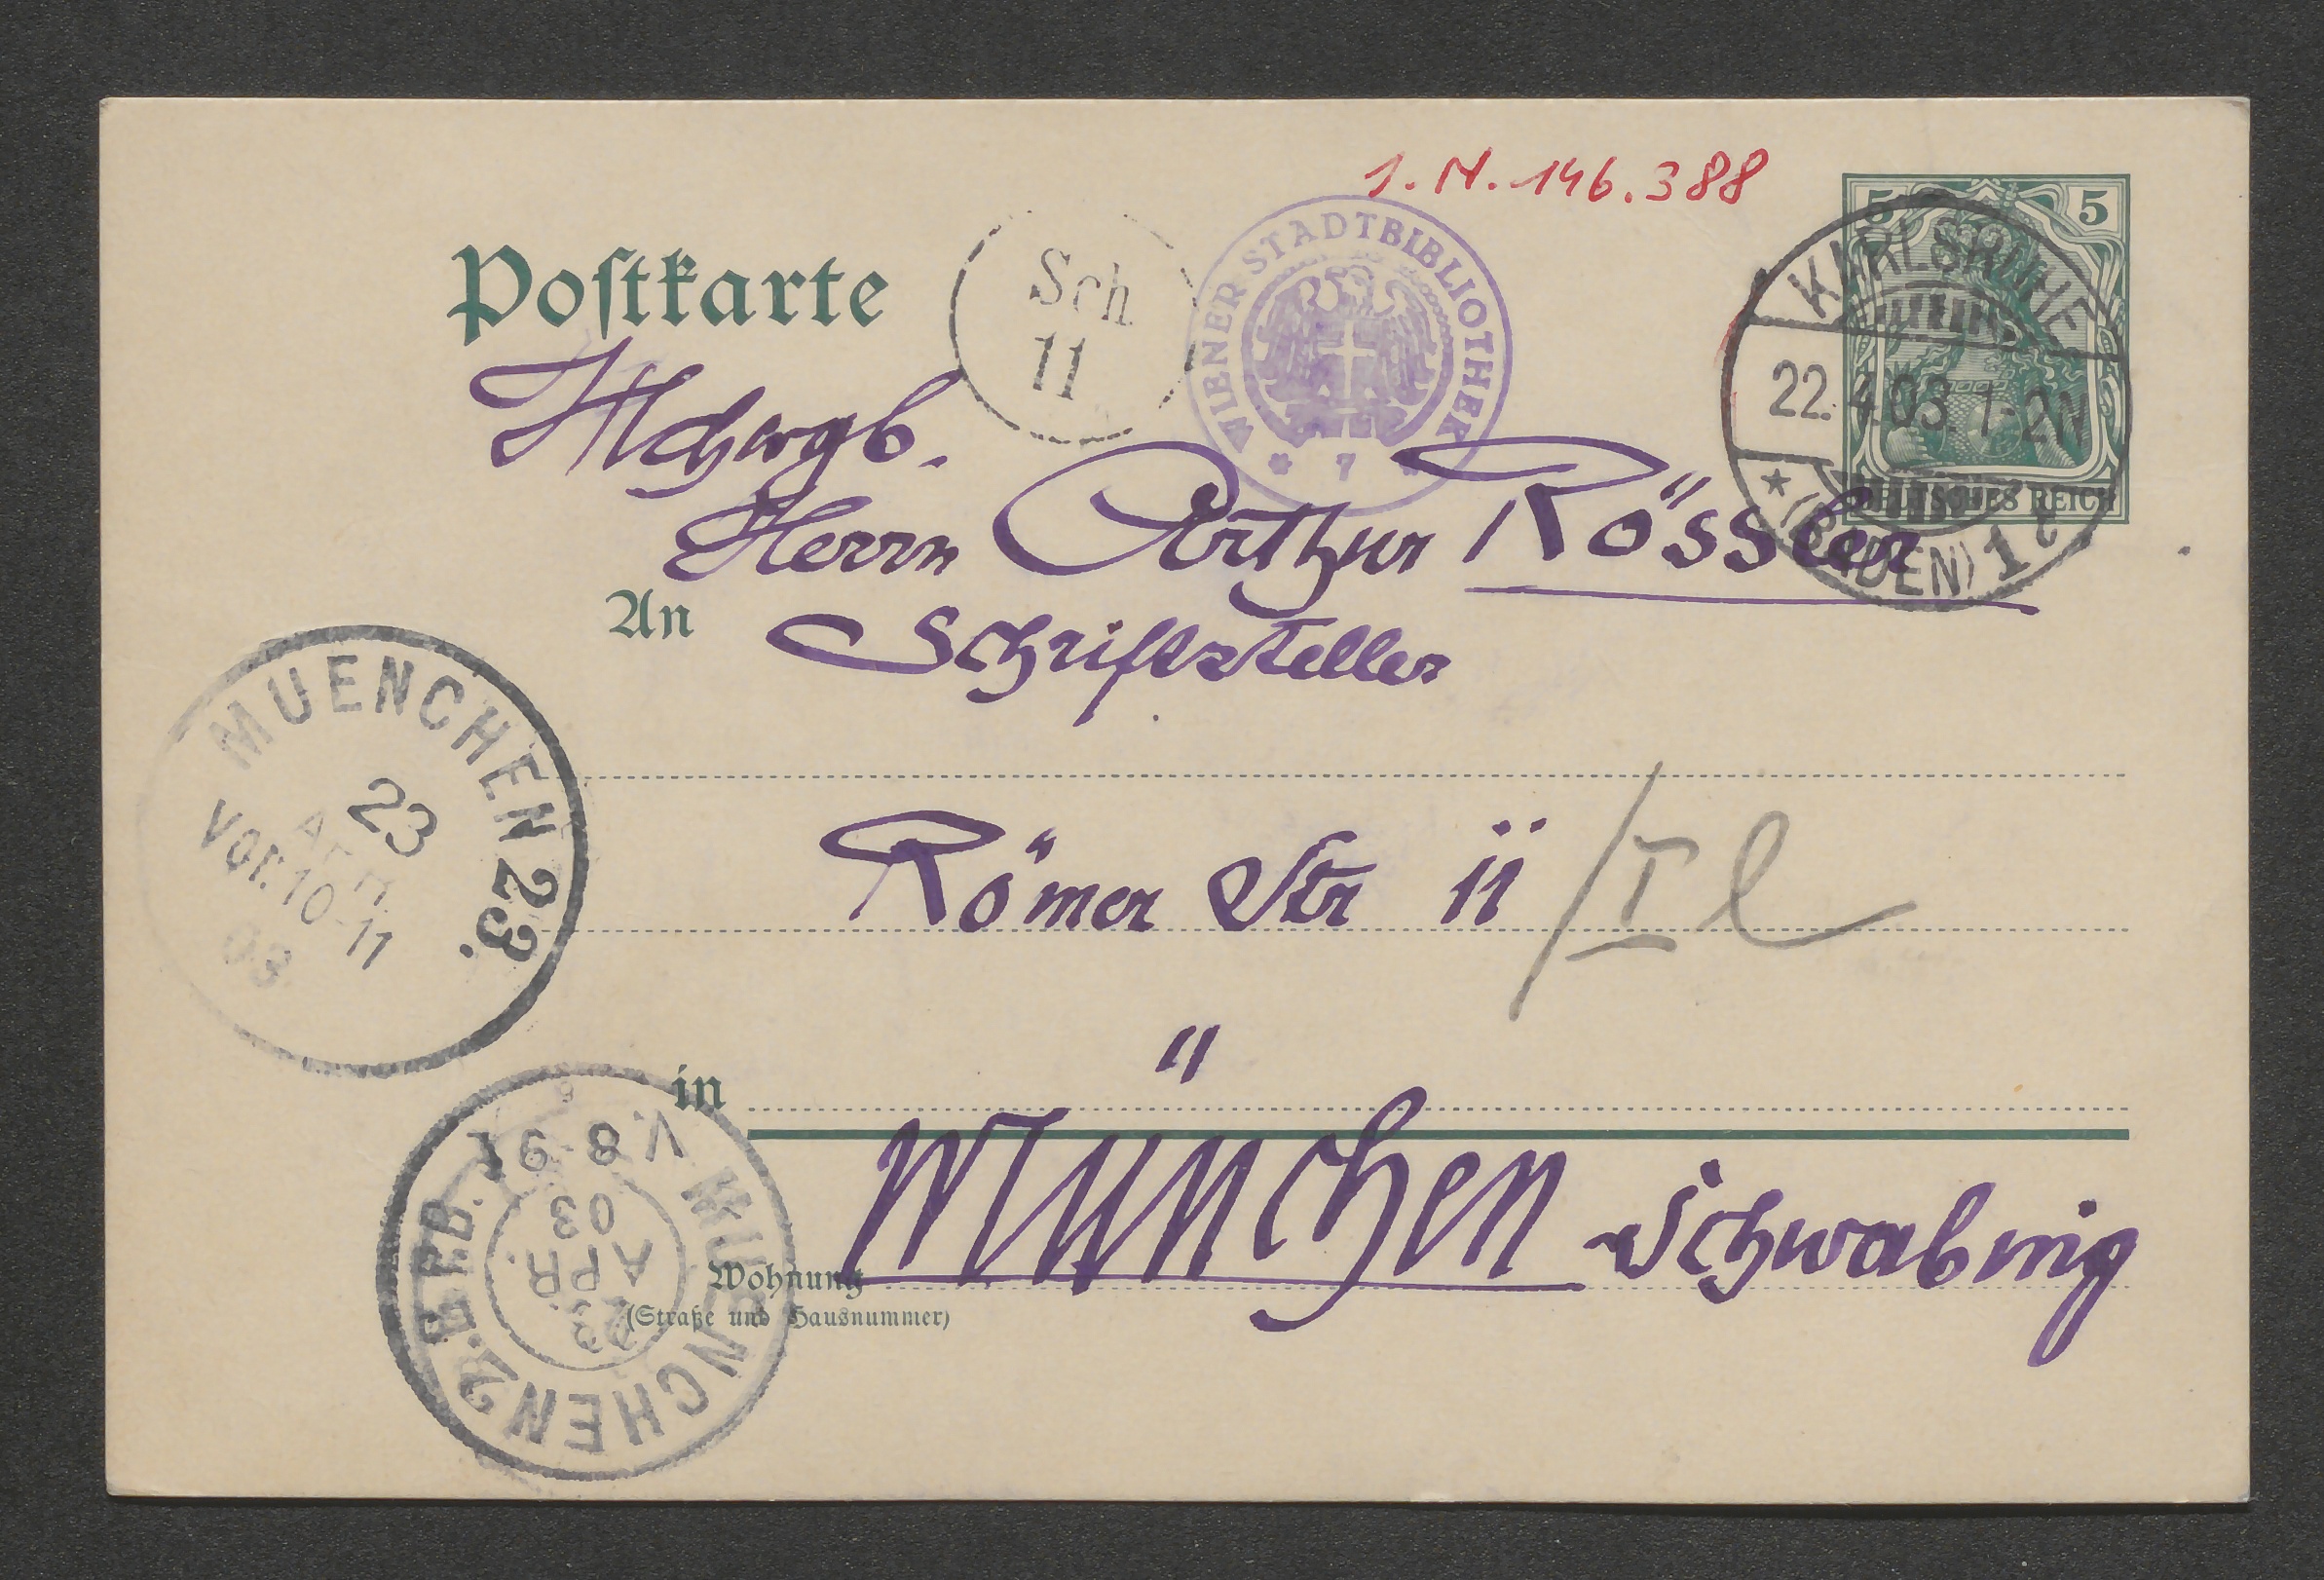 I.N. 146.388
5 5
Postkarte
Sch
11
WIENER STADTBIBLIOTHEK
* 7 *
KARLSRUHE
22.4.03. 1-2N
* (BADEN) 1 t
DEUTSCHES REICH
Herrn Arthur Rössler
An
Schriftsteller
MUENCHEN 23.
23
APR
Vor. 10-11
03
Römer Str 11 / I l
in
München Schwabing
V. 8-9
MUENCHEN 2. B.P.B.
23
APR.
03
Wohnung
(Straße und Hausnummer)